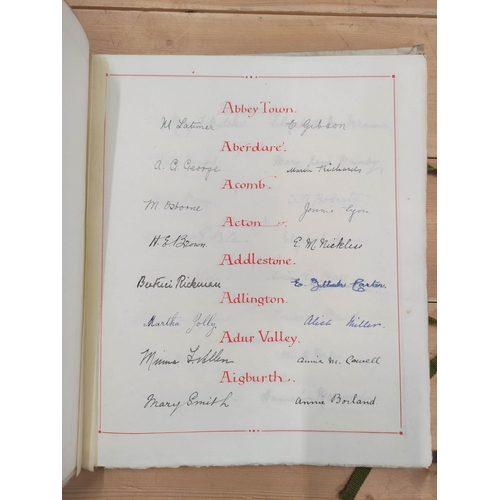 Abbey Town.
M Latimer E Gibson
Aberdare.
A. G. George Maria Richards
Acomb.
M. Osborne Jennie Lyon
Acton.
H. E. Brown E. M. Nickless
Addlestone.
Beatrice Rickman E. Carter.
Adlington.
Martha Jolly Alice Miller.
Adur Valley.
Minna Allen Annie M. Cowell
Aigburth.
Mary Smith Annie Borland